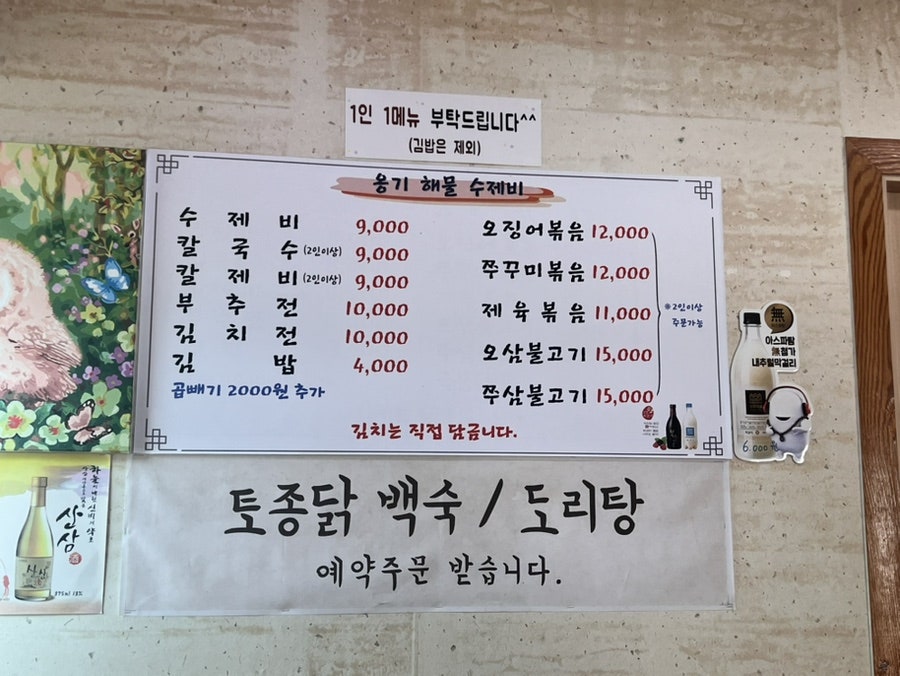 1인 1메뉴 부탁드립니다^^
(김밥은 제외)
옹기 해물 수제비
수 제 비 9,000
칼 국 수 (2인이상) 9,000
칼 제 비 (2인이상) 9,000
부 추 전 10,000
김 치 전 10,000
김 밥 4,000
곱빼기 2000원 추가
오징어볶음 12,000
쭈꾸미볶음 12,000
제육볶음 11,000
오삼불고기 15,000
쭈삼불고기 15,000
※2인이상
주문가능
김치는 직접 담금니다.
토종닭 백숙 / 도리탕
예약주문 받습니다.
無
아스파탐
無첨가
내추럴막걸리
6,000원
산삼
375ml